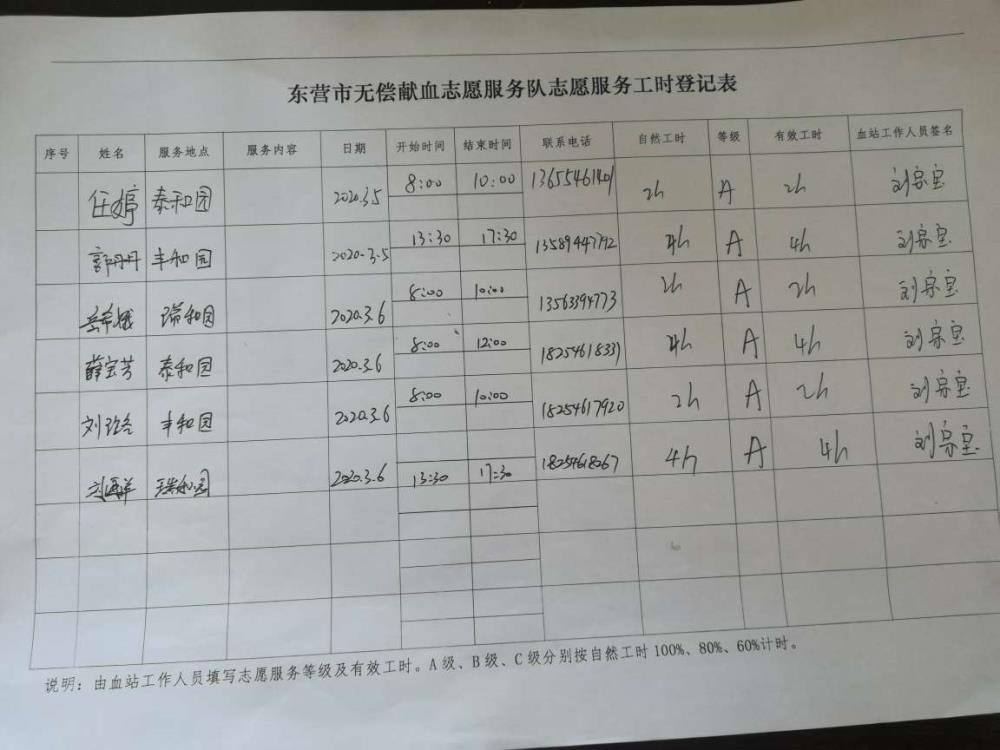 东营市无偿献血志愿服务队志愿服务工时登记表
序号 姓名 服务地点 服务内容 日期 开始时间 结束时间 联系电话 自然工时 等级 有效工时 血站工作人员签名
任婷 泰和园 2020.3.5 8:00 10:00 13655461401 2h A 2h 刘宗宝
郭丹丹 丰和园 2020.3.5 13:30 17:30 13589447792 4h A 4h 刘宗宝
瑞和园 2020.3.6 8:00 10:00 13563394773 2h A 2h 刘宗宝
薛宝芳 泰和园 2020.3.6 8:00 12:00 18254618331 4h A 4h 刘宗宝
刘 丰和园 2020.3.6 8:00 10:00 18254617920 2h A 2h 刘宗宝
刘海洋 瑞和园 2020.3.6 13:30 17:30 18254618267 4h A 4h 刘宗宝
说明：由血站工作人员填写志愿服务等级及有效工时。A级、B级、C级分别按自然工时100%、80%、60%计时。